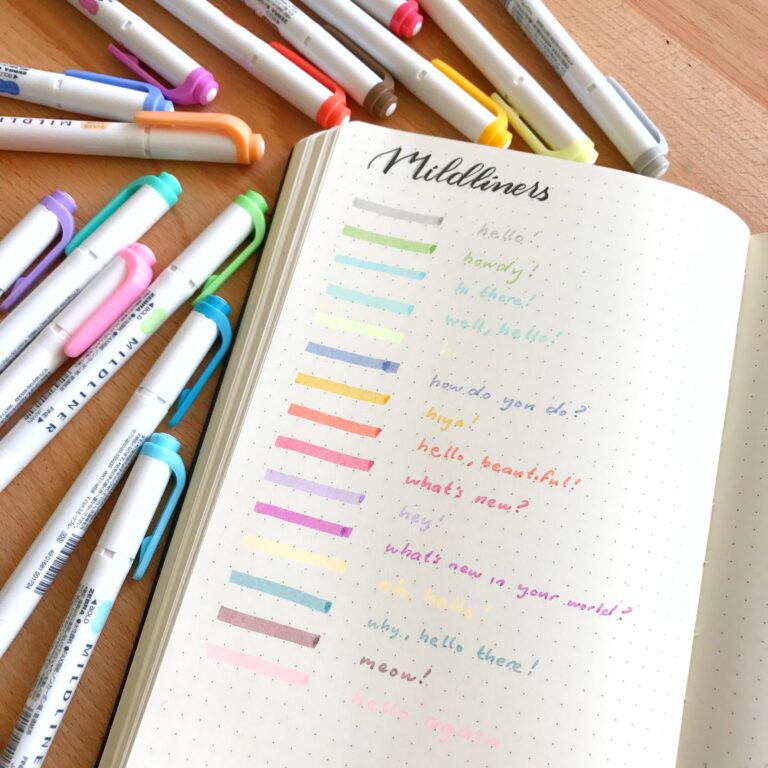 Mildliners
hello!
howdy!
hi there!
well, hello!
hi
how do you do?
hiya!
hello, beautiful!
what's new?
hey!
what's new in your world?
oh, hello!
why, hello there!
meow!
hello again
BOLD
MILDLINER
FINE
MILDLINER
BOLD
ZEBRA
MILDLINER